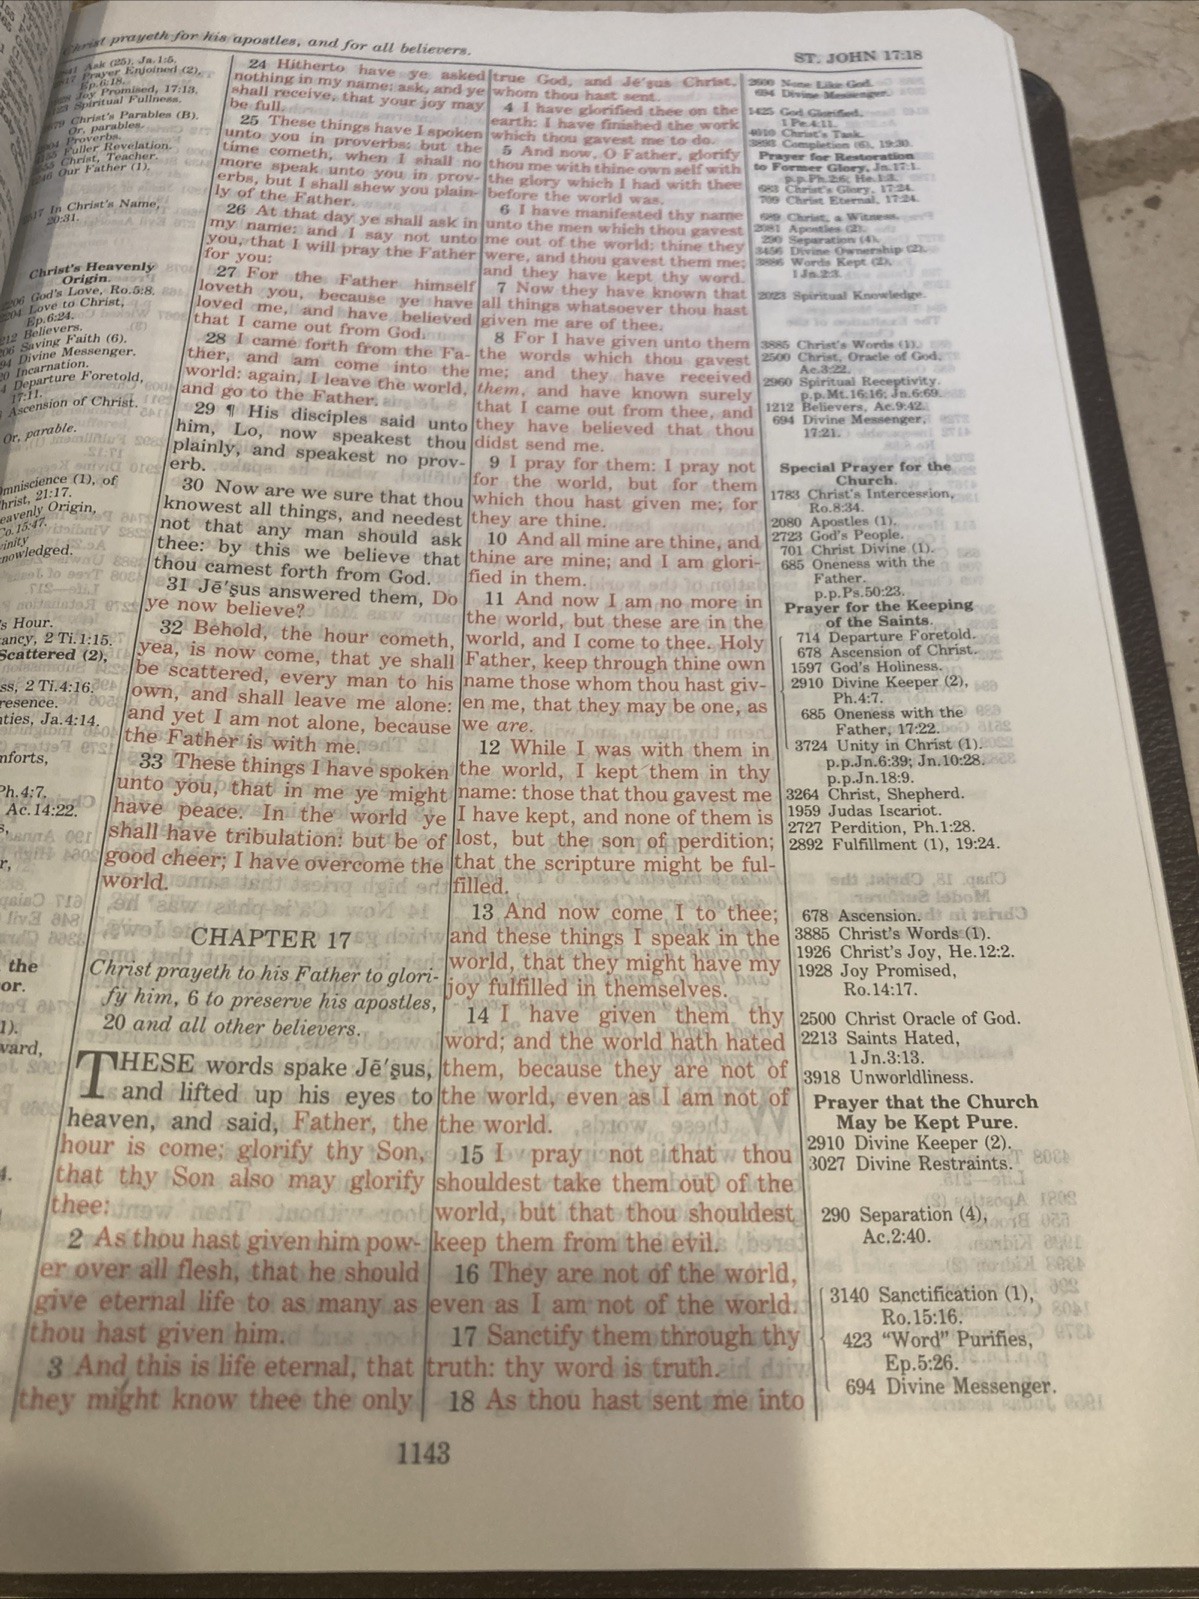 Christ prayeth for his apostles, and for all believers.
ST. JOHN 17:18
Ask (25), Ja.1:5.
Prayer Enjoined (2),
Ep.6:18.
Joy Promised, 17:13.
Spiritual Fullness.
Christ's Parables (B).
Or, parables.
Proverbs.
Fuller Revelation.
Christ, Teacher.
Our Father (1).
In Christ's Name,
20:31.
Christ's Heavenly
Origin.
God's Love, Ro.5:8.
Love to Christ,
Ep.6:24.
Believers.
Saving Faith (6).
Divine Messenger.
Incarnation.
Departure Foretold,
17:11.
Ascension of Christ.
Or, parable.
mniscience (1), of
hrist, 21:17.
eavenly Origin,
Co.15:47.
inity
nowledged.
s Hour.
ancy, 2 Ti.1:15.
Scattered (2),
ss, 2 Ti.4:16.
resence.
ties, Ja.4:14.
mforts,
Ph.4:7.
Ac.14:22.
the
or.
1).
ward,
24 Hitherto have ye asked
nothing in my name: ask, and ye
shall receive, that your joy may
be full.
25 These things have I spoken
unto you in proverbs: but the
time cometh, when I shall no
more speak unto you in prov-
erbs, but I shall shew you plain-
ly of the Father.
26 At that day ye shall ask in
my name: and I say not unto
you, that I will pray the Father
for you:
27 For the Father himself
loveth you, because ye have
loved me, and have believed
that I came out from God.
28 I came forth from the Fa-
ther, and am come into the
world: again, I leave the world,
and go to the Father.
29 ¶ His disciples said unto
him, Lo, now speakest thou
plainly, and speakest no prov-
erb.
30 Now are we sure that thou
knowest all things, and needest
not that any man should ask
thee: by this we believe that
thou camest forth from God.
31 Jē′ṣus answered them, Do
ye now believe?
32 Behold, the hour cometh,
yea, is now come, that ye shall
be scattered, every man to his
own, and shall leave me alone:
and yet I am not alone, because
the Father is with me.
33 These things I have spoken
unto you, that in me ye might
have peace. In the world ye
shall have tribulation: but be of
good cheer; I have overcome the
world.
CHAPTER 17
Christ prayeth to his Father to glori-
fy him, 6 to preserve his apostles,
20 and all other believers.
THESE words spake Jē′ṣus,
and lifted up his eyes to
heaven, and said, Father, the
hour is come; glorify thy Son,
that thy Son also may glorify
thee:
2 As thou hast given him pow-
er over all flesh, that he should
give eternal life to as many as
thou hast given him.
3 And this is life eternal, that
they might know thee the only
true God, and Jē′ṣus Christ,
whom thou hast sent.
4 I have glorified thee on the
earth: I have finished the work
which thou gavest me to do.
5 And now, O Father, glorify
thou me with thine own self with
the glory which I had with thee
before the world was.
6 I have manifested thy name
unto the men which thou gavest
me out of the world: thine they
were, and thou gavest them me;
and they have kept thy word.
7 Now they have known that
all things whatsoever thou hast
given me are of thee.
8 For I have given unto them
the words which thou gavest
me; and they have received
them, and have known surely
that I came out from thee, and
they have believed that thou
didst send me.
9 I pray for them: I pray not
for the world, but for them
which thou hast given me; for
they are thine.
10 And all mine are thine, and
thine are mine; and I am glori-
fied in them.
11 And now I am no more in
the world, but these are in the
world, and I come to thee. Holy
Father, keep through thine own
name those whom thou hast giv-
en me, that they may be one, as
we are.
12 While I was with them in
the world, I kept them in thy
name: those that thou gavest me
I have kept, and none of them is
lost, but the son of perdition;
that the scripture might be ful-
filled.
13 And now come I to thee;
and these things I speak in the
world, that they might have my
joy fulfilled in themselves.
14 I have given them thy
word; and the world hath hated
them, because they are not of
the world, even as I am not of
the world.
15 I pray not that thou
shouldest take them out of the
world, but that thou shouldest
keep them from the evil.
16 They are not of the world,
even as I am not of the world.
17 Sanctify them through thy
truth: thy word is truth.
18 As thou hast sent me into
2600 None Like God.
694 Divine Messenger.
1425 God Glorified,
1 Pe.4:11.
4010 Christ's Task.
3893 Completion (6), 19:30.
Prayer for Restoration
to Former Glory, Jn.17:1.
p.p.Ph.2:6; He.1:3.
683 Christ's Glory, 17:24.
709 Christ Eternal, 17:24.
689 Christ, a Witness.
2081 Apostles (2).
290 Separation (4).
3456 Divine Ownership (2).
3886 Words Kept (2),
1 Jn.2:3.
2023 Spiritual Knowledge.
3885 Christ's Words (1).
2500 Christ, Oracle of God,
Ac.3:22.
2960 Spiritual Receptivity.
p.p.Mt.16:16; Jn.6:69.
1212 Believers, Ac.9:42.
694 Divine Messenger,
17:21.
Special Prayer for the
Church.
1783 Christ's Intercession,
Ro.8:34.
2080 Apostles (1).
2723 God's People.
701 Christ Divine (1).
685 Oneness with the
Father.
p.p.Ps.50:23.
Prayer for the Keeping
of the Saints.
714 Departure Foretold.
678 Ascension of Christ.
1597 God's Holiness.
2910 Divine Keeper (2),
Ph.4:7.
685 Oneness with the
Father, 17:22.
3724 Unity in Christ (1).
p.p.Jn.6:39; Jn.10:28.
p.p.Jn.18:9.
3264 Christ, Shepherd.
1959 Judas Iscariot.
2727 Perdition, Ph.1:28.
2892 Fulfillment (1), 19:24.
678 Ascension.
3885 Christ's Words (1).
1926 Christ's Joy, He.12:2.
1928 Joy Promised,
Ro.14:17.
2500 Christ Oracle of God.
2213 Saints Hated,
1 Jn.3:13.
3918 Unworldliness.
Prayer that the Church
May be Kept Pure.
2910 Divine Keeper (2).
3027 Divine Restraints.
290 Separation (4),
Ac.2:40.
3140 Sanctification (1),
Ro.15:16.
423 "Word" Purifies,
Ep.5:26.
694 Divine Messenger.
1143